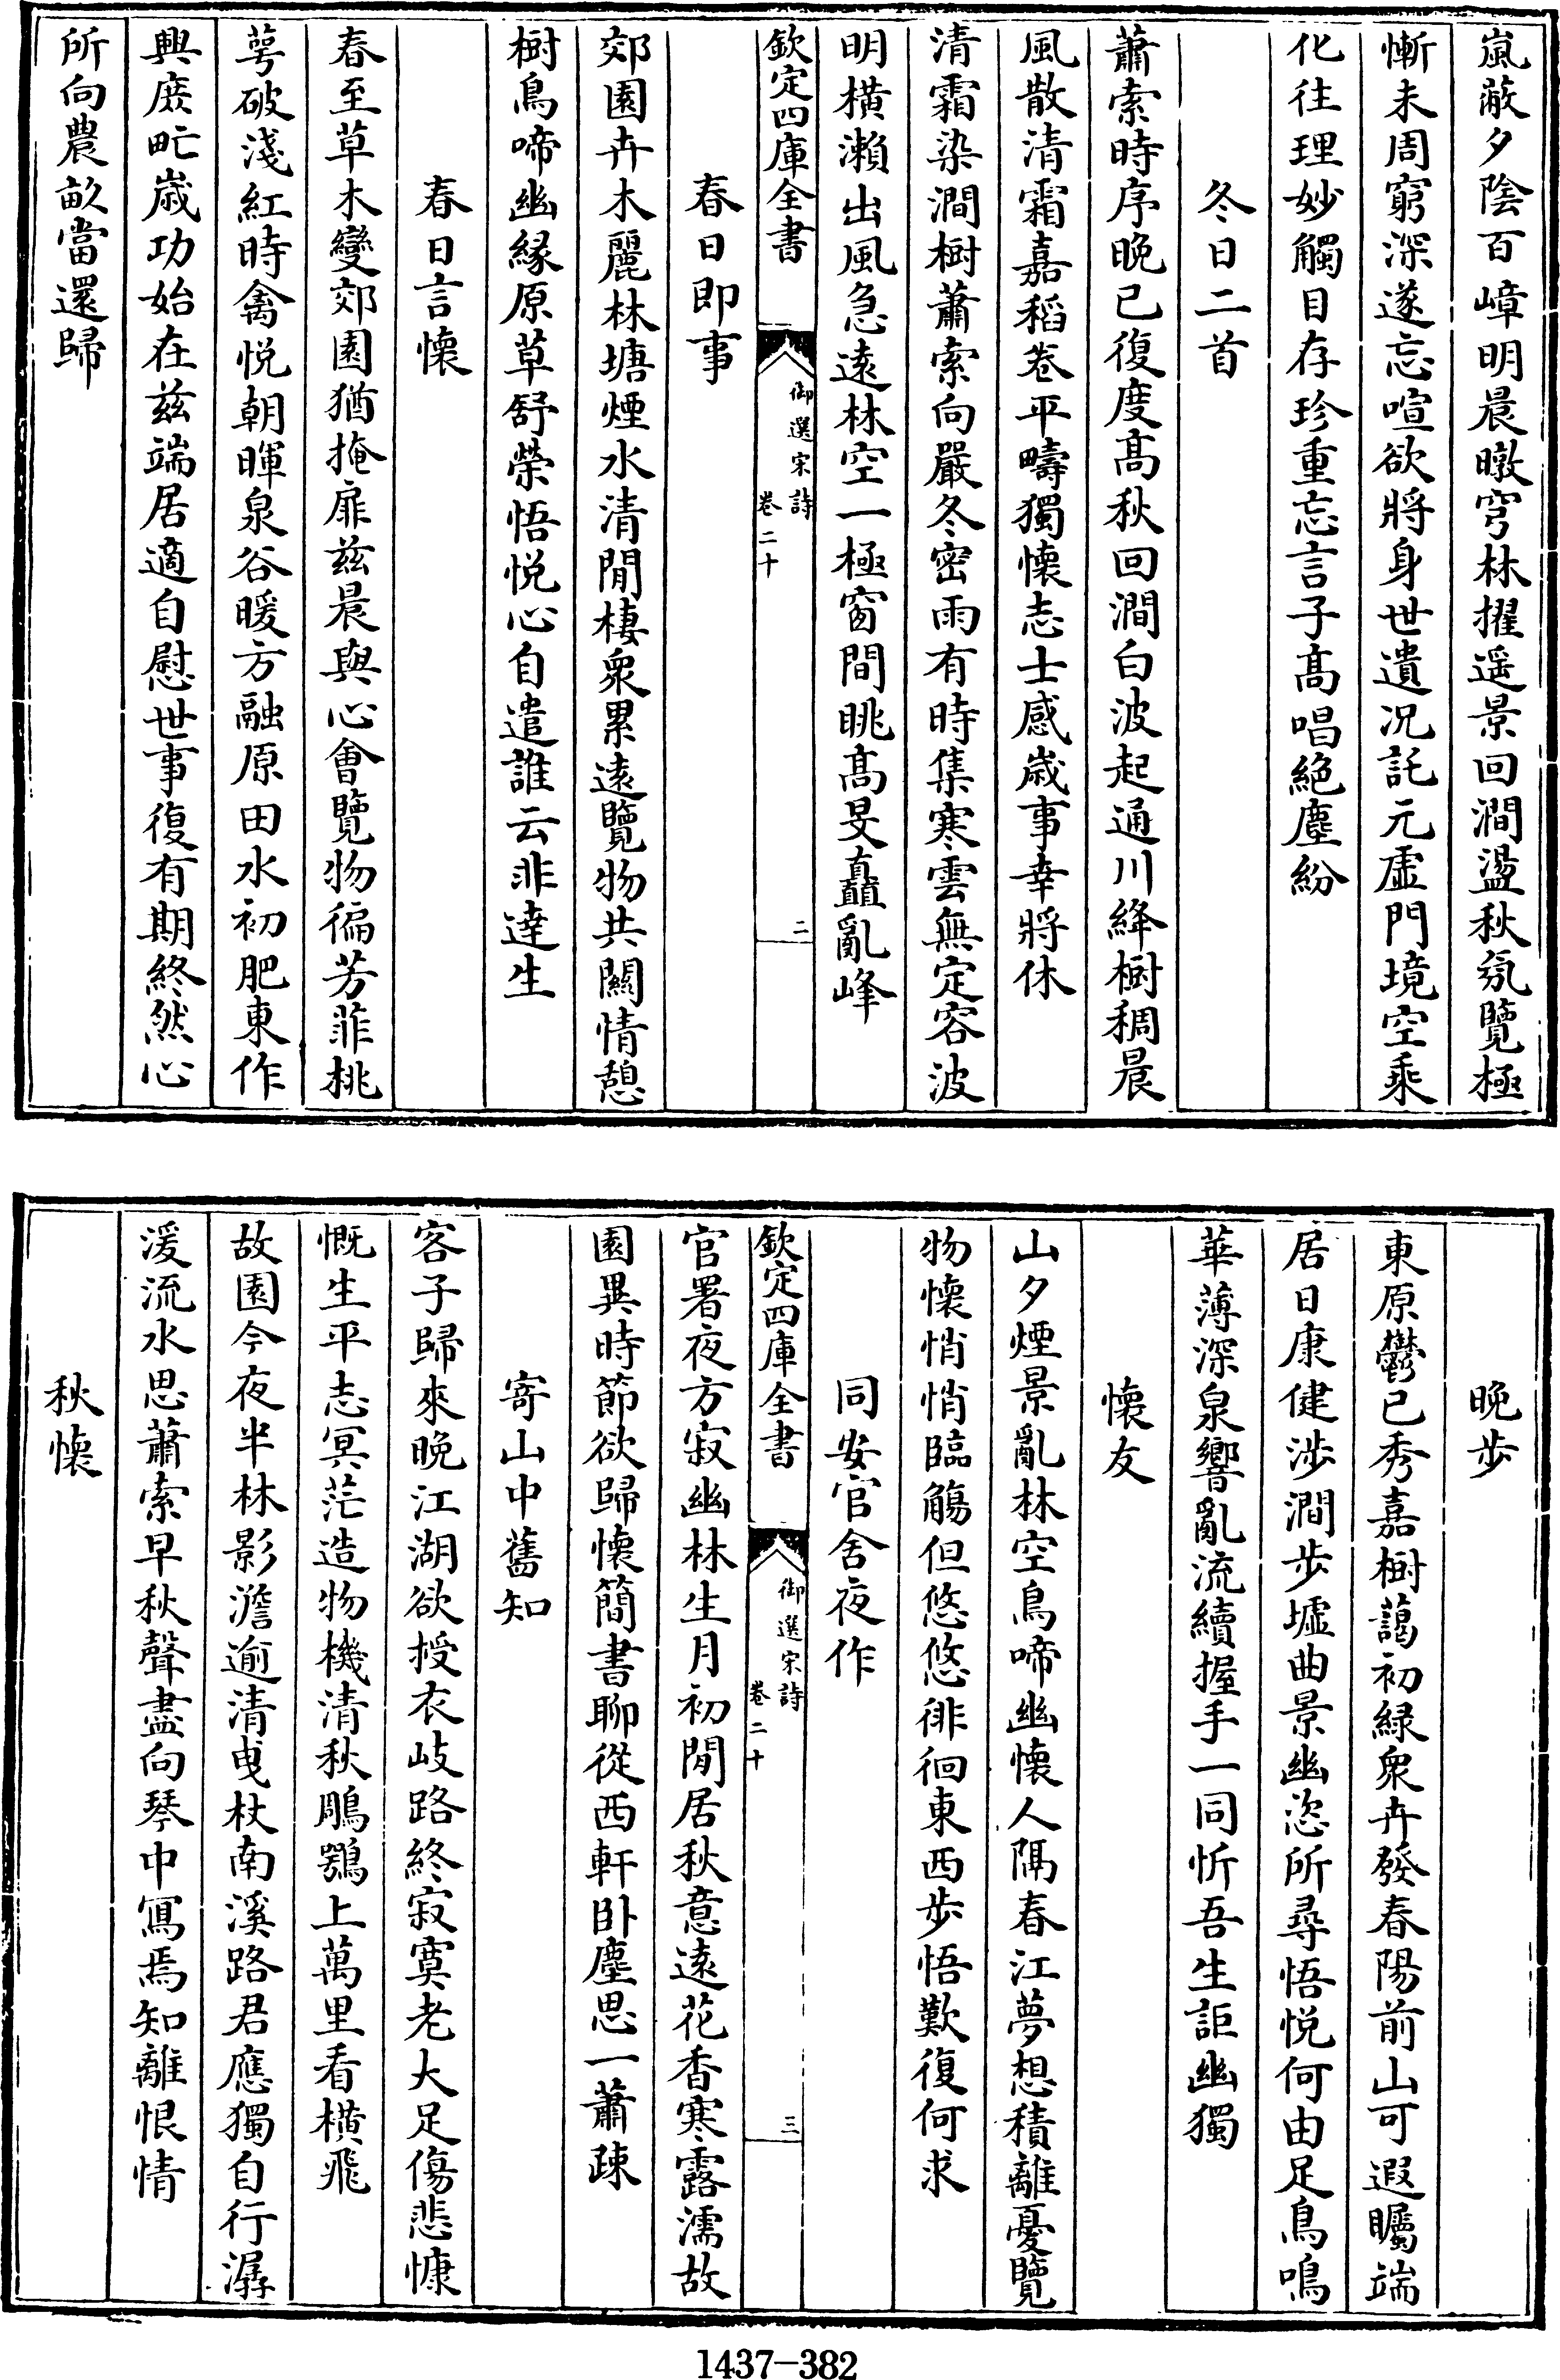 嵐蔽夕陰百嶂明晨暾穹林擢遥景回澗盪秋氛覽極
慚未周窮深遂忘喧欲將身世遺况託元虛門境空乘
化往理妙觸目存珍重忘言子髙唱絶塵紛
冬日二首
蕭索時序晩已復度髙秋回澗白波起通川絳樹稠晨
風散清霜嘉稻卷平疇獨懷志士感歲事幸將休
清霜染澗樹蕭索向嚴冬密雨有時集寒雲無定容波
明横瀨出風急遠林空一極窗間眺髙旻矗亂峰
欽定四庫全書
御選宋詩
卷二十
二
春日即事
郊園卉木麗林塘煙水清閒棲衆累遠覽物共闗情憩
樹鳥啼幽緣原草舒榮悟悦心自遣誰云非達生
春日言懷
春至草木變郊園猶掩扉兹晨與心會覽物徧芳菲桃
萼破淺紅時禽悦朝暉泉谷暖方融原田水初肥東作
興庶甿歲功始在兹端居適自慰世事復有期終然心
所向農畝當還歸
晩步
東原鬱已秀嘉樹藹初緑衆卉發春陽前山可遐矚端
居日康健涉澗步墟曲景幽恣所尋悟悦何由足鳥鳴
華薄深泉響亂流續握手一同忻吾生詎幽獨
懷友
山夕煙景亂林空鳥啼幽懷人隔春江夢想積離憂覽
物懷悄悄臨觴但悠悠徘徊東西步悟歎復何求
同安官舍夜作
欽定四庫全書
御選宋詩
卷二十
三
官署夜方寂幽林生月初閒居秋意遠花香寒露濡故
園異時節欲歸懷簡書聊從西軒卧塵思一蕭疎
寄山中舊知
客子歸來晩江湖欲授衣岐路終寂寞老大足傷悲慷
慨生平志冥茫造物機清秋鵰鶚上萬里看横飛
故園今夜半林影澹逾清曳杖南溪路君應獨自行潺
湲流水思蕭索早秋聲盡向琴中寫焉知離恨情
秋懷
1437-382